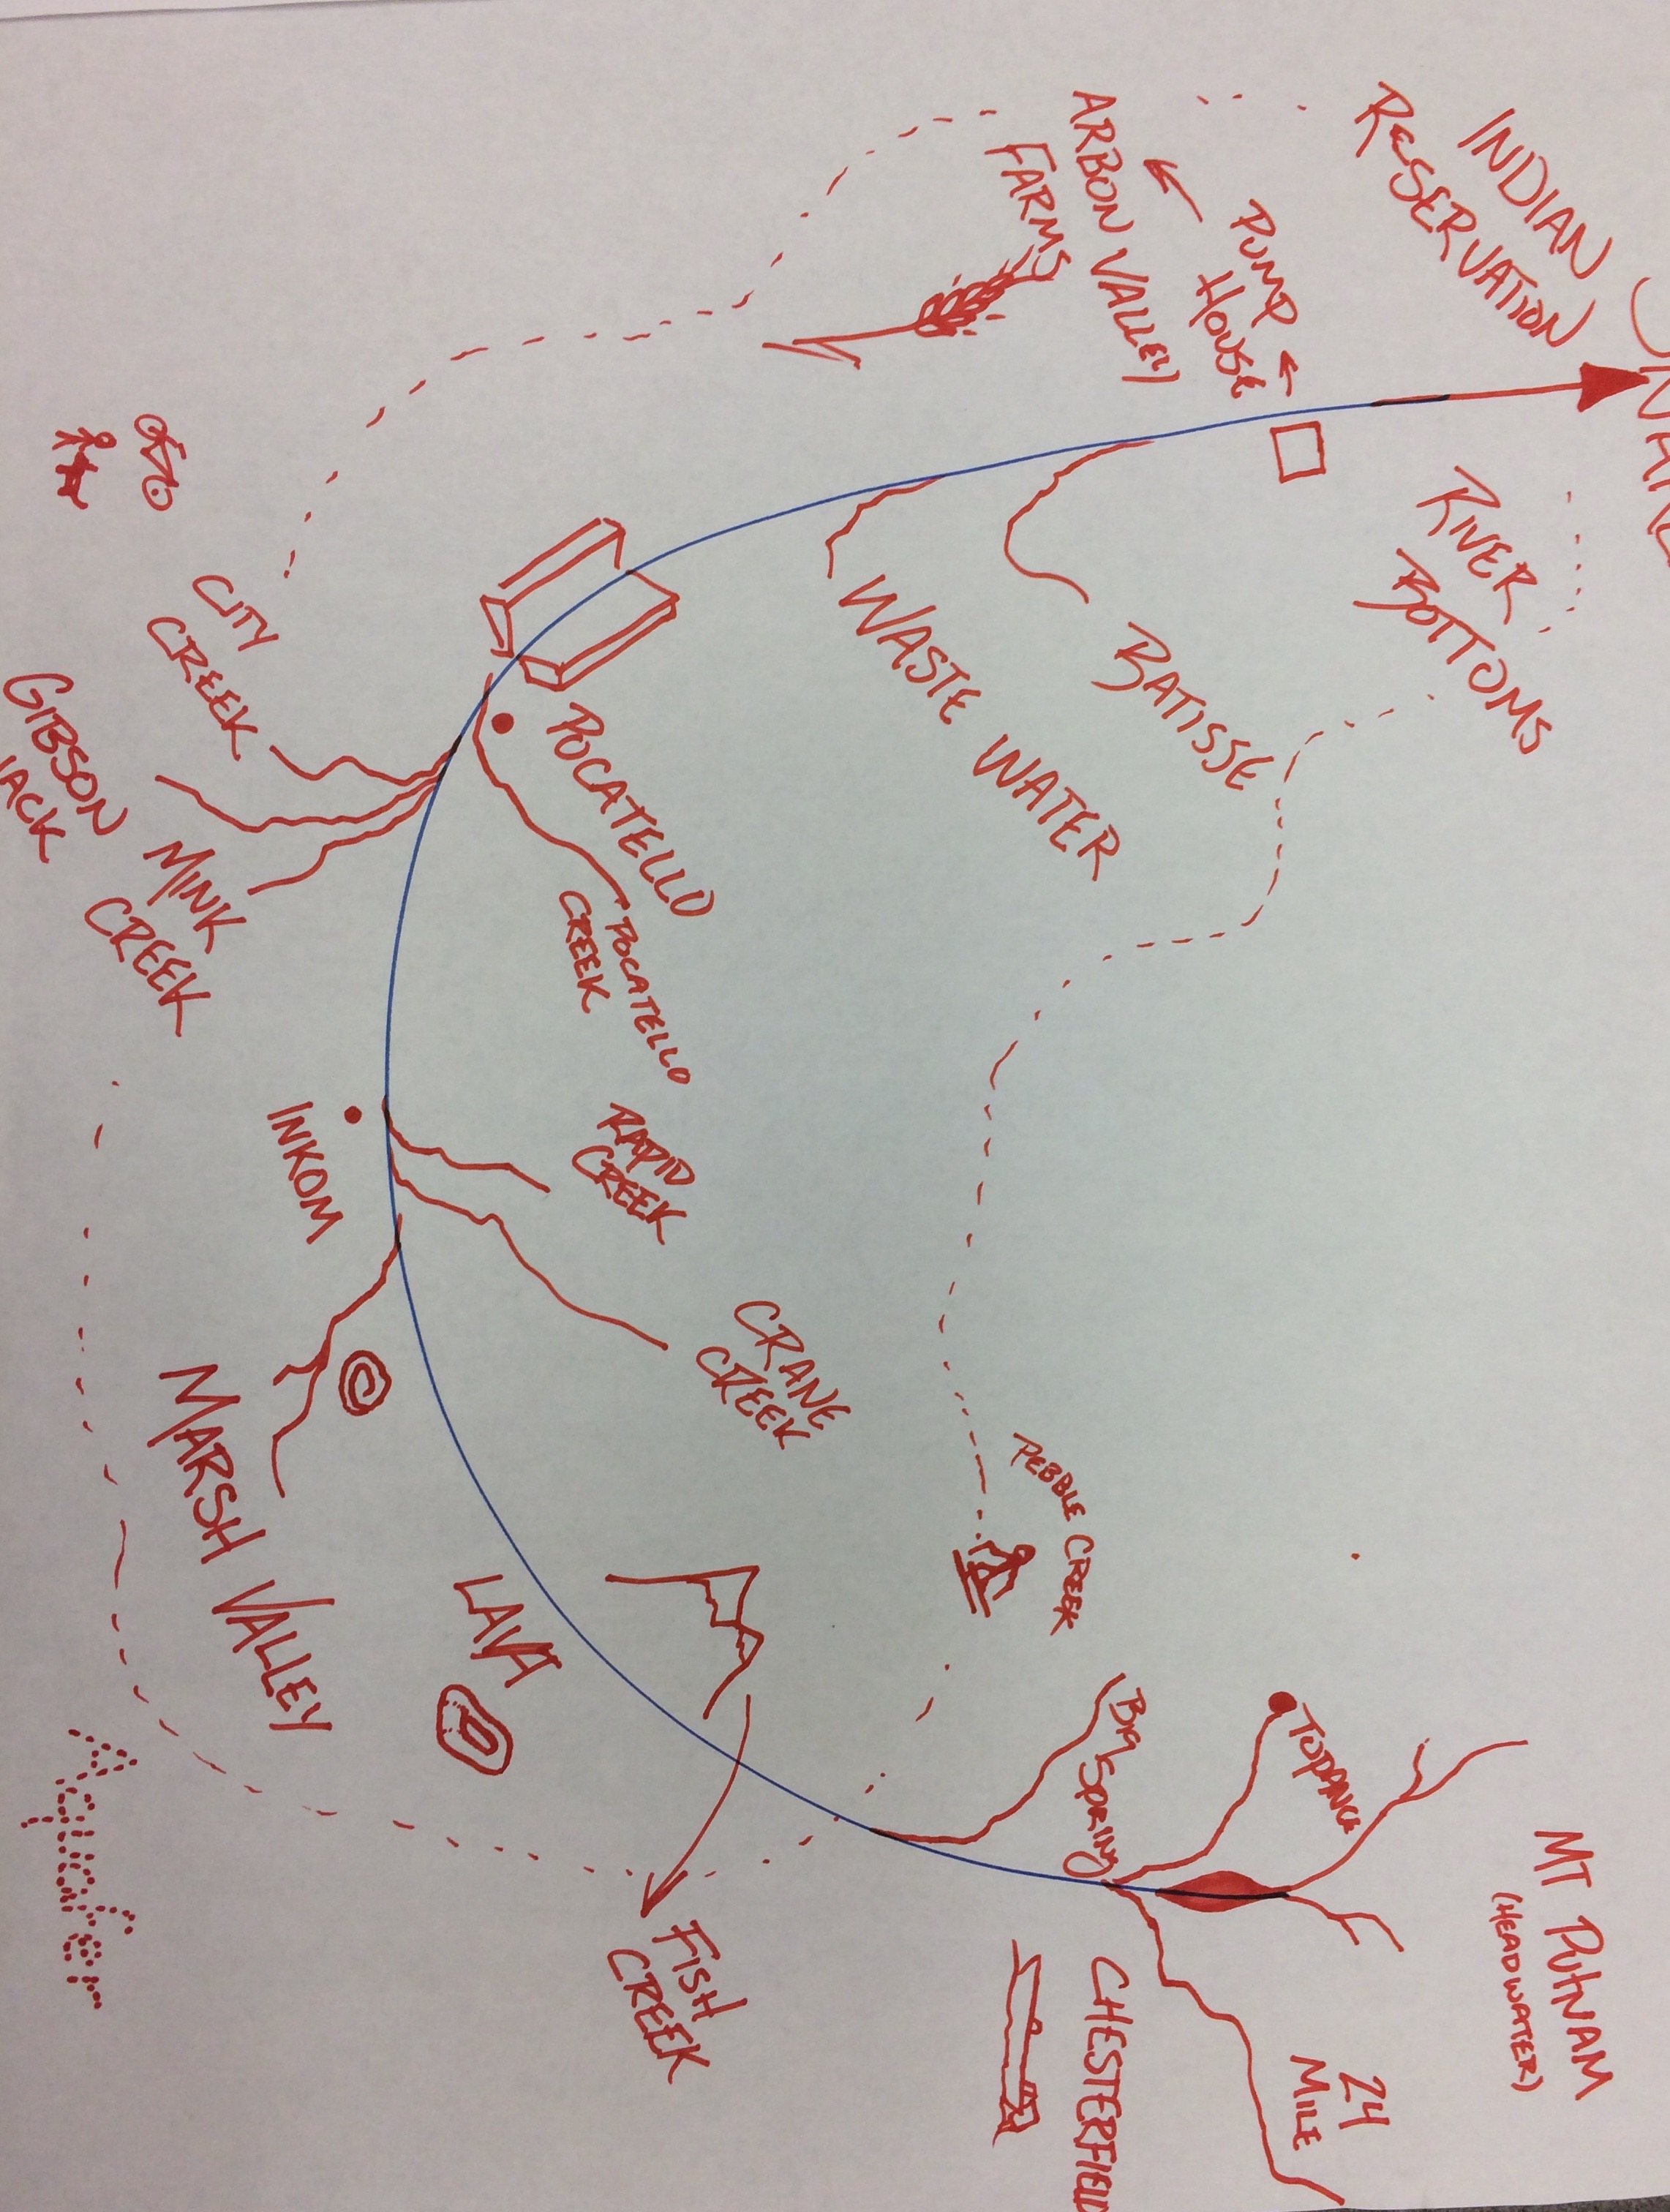 INDIAN
RESERVATION
PUMP
HOUSE
ARBON VALLEY
FARMS
RIVER
BOTTOMS
BATISSE
WASTE WATER
POCATELLO
POCATELLO
CREEK
CITY
CREEK
GIBSON
JACK
MINK
CREEK
INKOM
RAPID
CREEK
CRANE
CREEK
MARSH VALLEY
LAVA
PEBBLE CREEK
FISH
CREEK
BIG SPRING
TOPANCE
CHESTERFIELD
24
MILE
MT PUTNAM
(HEADWATER)
Aquafer